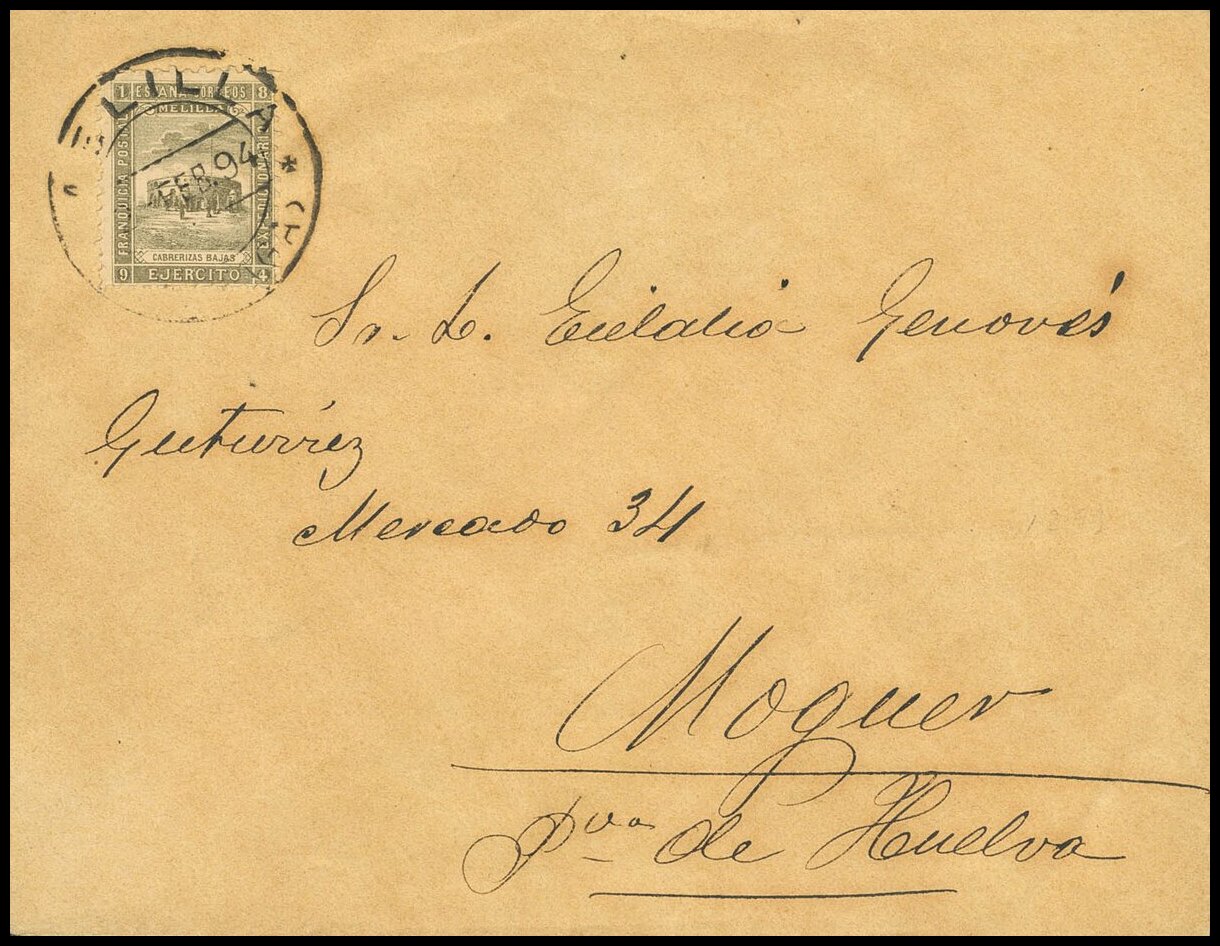 ELILLA * FEB. 94
1 ESPAÑA CORREOS 8
MELILLA
FRANQUICIA POSTAL
EXPEDICIONARIO
CABRERIZAS BAJAS
9 EJERCITO 4
Sr. D. Eulalia Genovés
Gutiérrez
Mercado 34
Moguer
Pva de Huelva